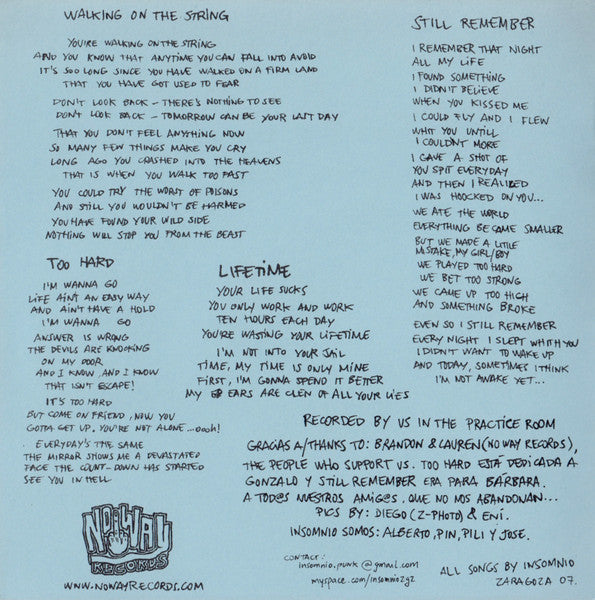 WALKING ON THE STRING
YOU'RE WALKING ON THE STRING
AND YOU KNOW THAT ANYTIME YOU CAN FALL INTO AVOID
IT'S SOO LONG SINCE YOU HAVE WALKED ON A FIRM LAND
THAT YOU HAVE GOT USED TO FEAR
DON'T LOOK BACK - THERE'S NOTHING TO SEE
DON'T LOOK BACK - TOMORROW CAN BE YOUR LAST DAY
THAT YOU DON'T FEEL ANYTHING NOW
SO MANY FEW THINGS MAKE YOU CRY
LONG AGO YOU CRASHED INTO THE HEAVENS
THAT IS WHEN YOU WALK TOO FAST
YOU COULD TRY THE WORST OF POISONS
AND STILL YOU WOULDN'T BE HARMED
YOU HAVE FOUND YOUR WILD SIDE
NOTHING WILL STOP YOU FROM THE BEAST
STILL REMEMBER
I REMEMBER THAT NIGHT
ALL MY LIFE
I FOUND SOMETHING
I DIDN'T BELIEVE
WHEN YOU KISSED ME
I COULD FLY AND I FLEW
WHIT YOU UNTILL
I COULDN'T MORE
I GAVE A SHOT OF
YOU SPIT EVERYDAY
AND THEN I REALIZED
I WAS HOOCKED ON YOU...
WE ATE THE WORLD
EVERYTHING BECAME SMALLER
BUT WE MADE A LITTLE
MISTAKE, MY GIRL/BOY
WE PLAYED TOO HARD
WE BET TOO STRONG
WE CAME UP TOO HIGH
AND SOMETHING BROKE
EVEN SO I STILL REMEMBER
EVERY NIGHT I SLEPT WHITH YOU
I DIDN'T WANT TO WAKE UP
AND TODAY, SOMETIMES I THINK
I'M NOT AWAKE YET...
TOO HARD
I'M WANNA GO
LIFE AIN'T AN EASY WAY
AND AIN'T HAVE A HOLD
I'M WANNA GO
ANSWER IS WRONG
THE DEVILS ARE KNOCKING
ON MY DOOR
AND I KNOW, AND I KNOW
THAT ISN'T ESCAPE!
IT'S TOO HARD
BUT COME ON FRIEND, NOW YOU
GOTTA GET UP, YOU'RE NOT ALONE...oooh!
EVERYDAY'S THE SAME
THE MIRROR SHOWS ME A DEVASTATED
FACE THE COUNT-DOWN HAS STARTED
SEE YOU IN HELL
LIFETIME
YOUR LIFE SUCKS
YOU ONLY WORK AND WORK
TEN HOURS EACH DAY
YOU'RE WASTING YOUR LIFETIME
I'M NOT INTO YOUR JAIL
TIME, MY TIME IS ONLY MINE
FIRST, I'M GONNA SPEND IT BETTER
MY EARS ARE CLEN OF ALL YOUR LIES
RECORDED BY US IN THE PRACTICE ROOM
GRACIAS A/THANKS TO: BRANDON & LAUREN (NO WAY RECORDS),
THE PEOPLE WHO SUPPORT US. TOO HARD ESTÁ DEDICADA A
GONZALO Y STILL REMEMBER ERA PARA BÁRBARA.
A TOD@S NUESTROS AMIG@S. QUE NO NOS ABANDONAN...
PICS BY: DIEGO (Z-PHOTO) & ENI.
INSOMNIO SOMOS: ALBERTO, PIN, PILI Y JOSE.
NO WAY
RECORDS
WWW.NOWAYRECORDS.COM
CONTACT:
insomnio.punk@gmail.com
myspace.com/insomniozgz
ALL SONGS BY INSOMNIO
ZARAGOZA 07.